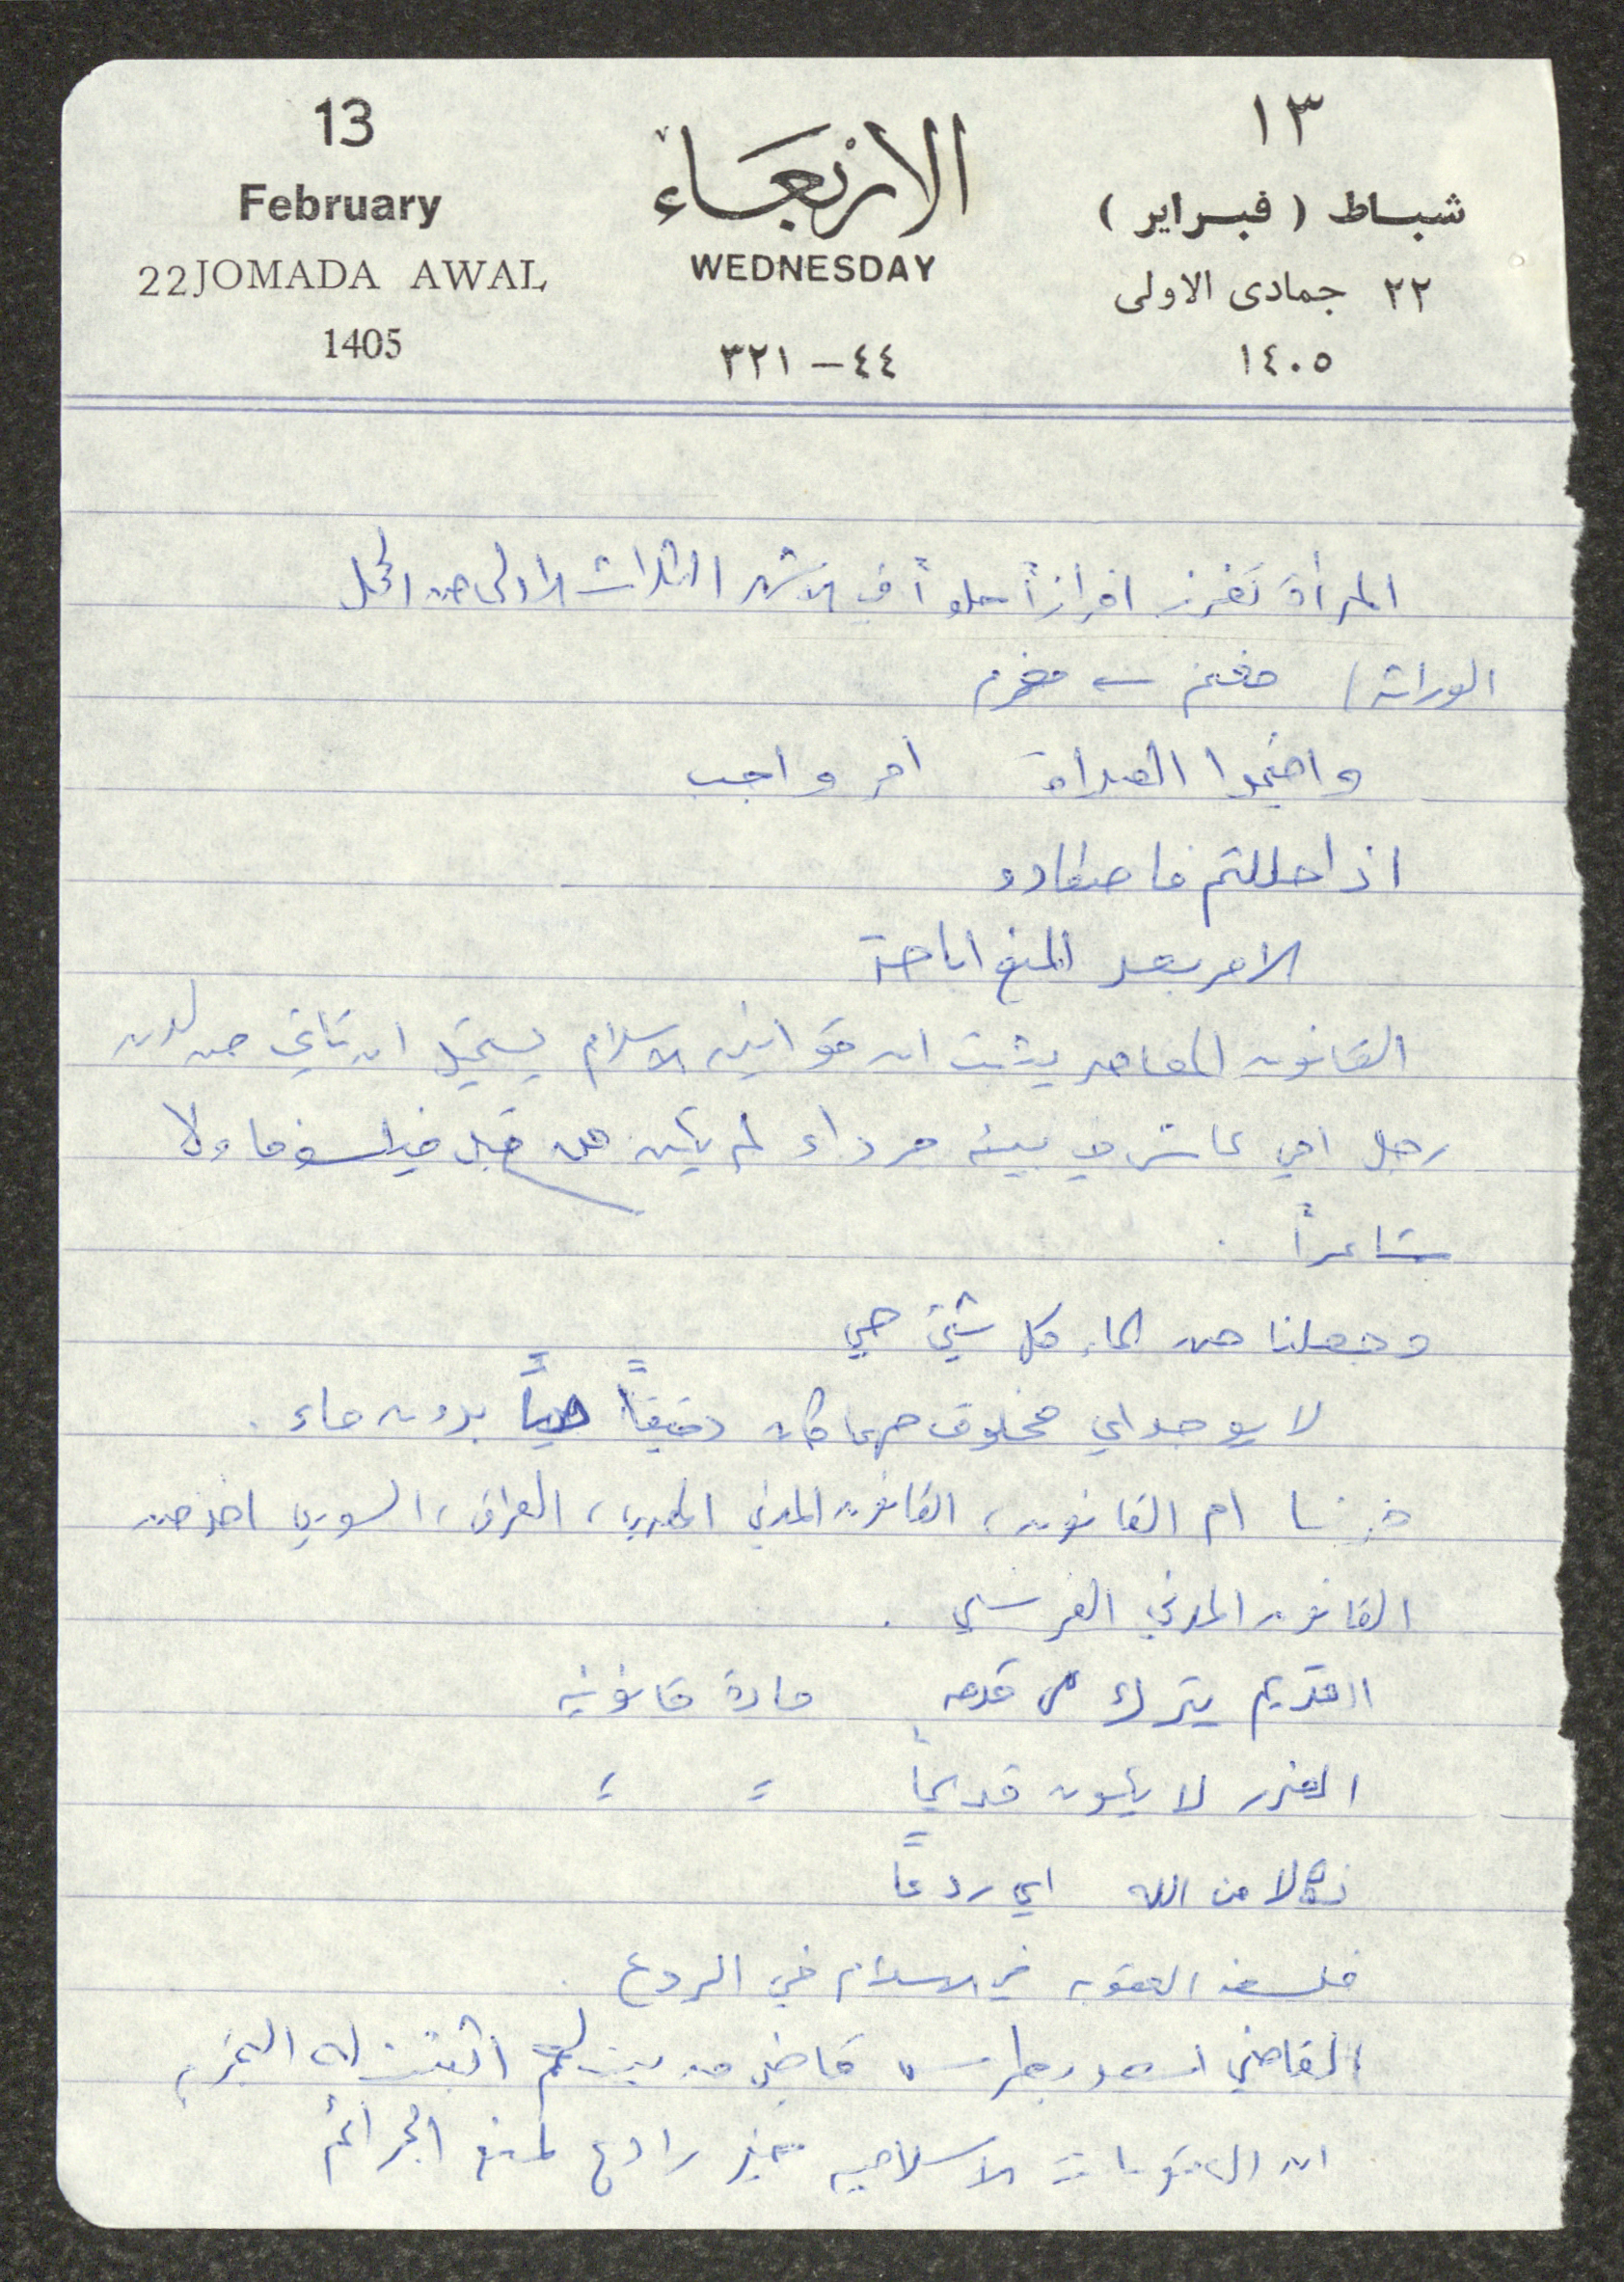 13
February
22 JOMADA AWAL
1405
الاربعاء
WEDNESDAY
٤٤ – ٣٢١
١٣
شباط ( فبراير )
٢٢ جمادى الاولى
١٤٠٥
المرأة تفرز افرازاً حلواً في الاشهر الثلاث الاولى من الحمل
الوراثة /
واقيموا الصلاة امر واجب
اذا حللتم فاصطادو
الامر بعد المنع اباحة
القانون المعاصر يثبت ان قوانين الاسلام يستحيل ان تأتي من لدن
رجل امي عاش في بيئه جرداء لم يكن من قبل فيلسوفا ولا
شاعراً .
وجعلنا من الماء كل شيئ حي
لا يوجد اي مخلوق مهما كان دقيقاً حياً بدون ماء .
فرنسا ام القانون ، القانون المدني المصري ، العراقي ، السوري اخذ من
القانون المدني الفرنسي .
القديم يترك على قدمه مادة قانونيه
الضرر لا يكون قديماً = =
نكالا من الله اي ردعاً
فلسفة العقوبه في الاسلام هي الردع .
القاضي اسعد بطرس قاضي من بيت لحم اثبتت له التجربه
ان العقوبات الاسلاميه خير رادع لمنع الجرائم